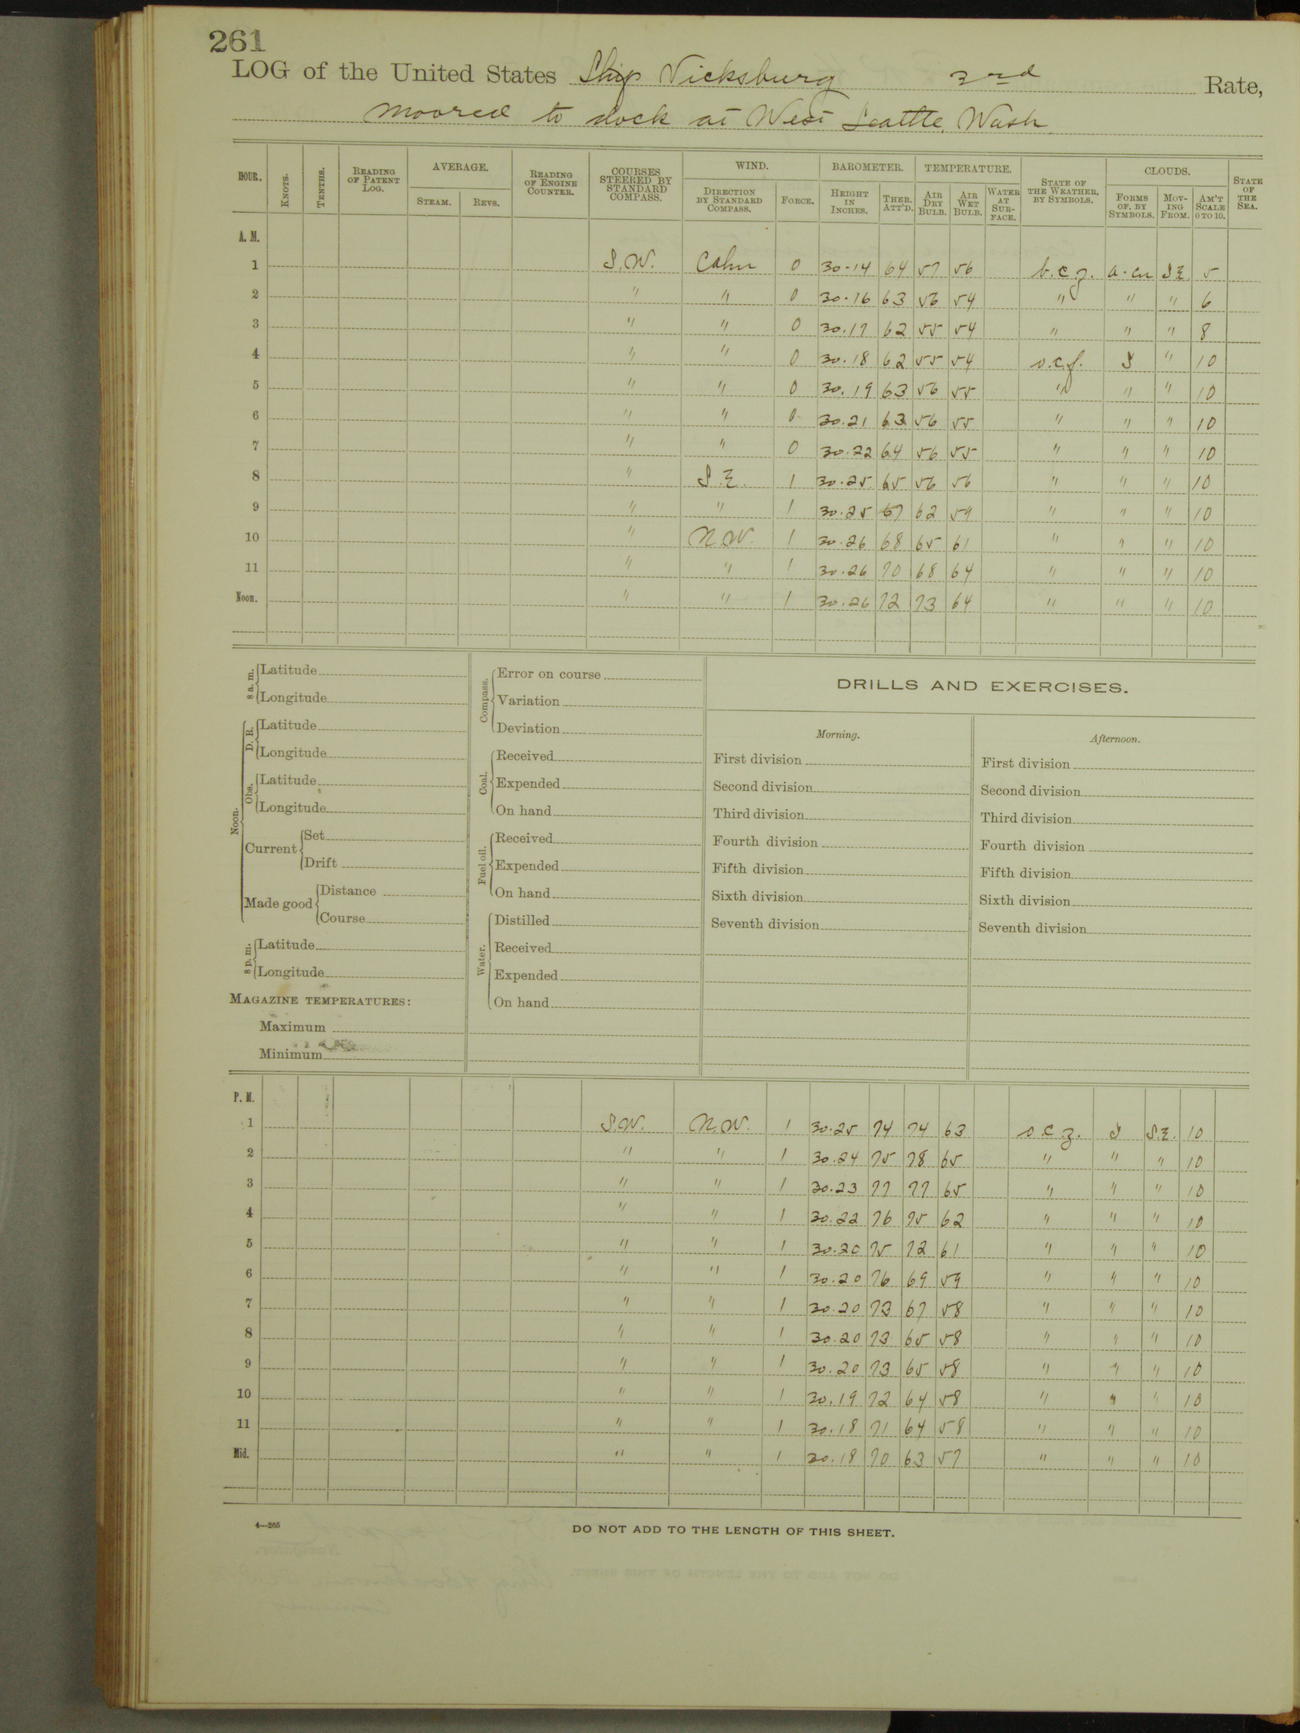 261
LOG of the United States Ship Vicksburg 3rd Rate,
Moored to dock at West Seattle, Wash
HOUR. KNOTS. TENTHS. READING OF PATENT LOG. AVERAGE. STEAM. REVS. READING OF ENGINE COUNTER. COURSES STEERED BY STANDARD COMPASS. WIND. DIRECTION BY STANDARD COMPASS. FORCE. BAROMETER. HEIGHT IN INCHES. THER. ATT'D. TEMPERATURE. AIR DRY BULB. AIR WET BULB. WATER AT SURFACE. STATE OF THE WEATHER, BY SYMBOLS. CLOUDS. FORMS OF, BY SYMBOLS. MOVING FROM. AM'T SCALE 0 TO 10. STATE OF THE SEA.
A. M.
1 S.W. Calm 0 30.14 64 57 56 b.c.z. a-cu S.E. 5
2 " " 0 30.16 63 56 54 " " " 6
3 " " 0 30.17 62 55 54 " " " 8
4 " " 0 30.18 62 55 54 o.c.f. S " 10
5 " " 0 30.19 63 56 55 " " " 10
6 " " 0 30.21 63 56 55 " " " 10
7 " " 0 30.22 64 56 55 " " " 10
8 " S.E. 1 30.25 65 56 56 " " " 10
9 " " 1 30.25 67 62 59 " " " 10
10 " N.W. 1 30.26 68 65 61 " " " 10
11 " " 1 30.26 70 68 64 " " " 10
Noon. " " 1 30.26 72 73 64 " " " 10
8 a. m. Latitude
Longitude
Noon. D. R. Latitude
Longitude
Obs. Latitude
Longitude
Current Set
Drift
Made good Distance
Course
8 p. m. Latitude
Longitude
MAGAZINE TEMPERATURES:
Maximum
Minimum
Compass. Error on course
Variation
Deviation
Coal. Received
Expended
On hand
Fuel oil. Received
Expended
On hand
Water. Distilled
Received
Expended
On hand
DRILLS AND EXERCISES.
Morning.
First division
Second division
Third division
Fourth division
Fifth division
Sixth division
Seventh division
Afternoon.
First division
Second division
Third division
Fourth division
Fifth division
Sixth division
Seventh division
P. M.
1 S.W. N.W. 1 30.25 74 74 63 o.c.z. S S.E. 10
2 " " 1 30.24 75 78 65 " " " 10
3 " " 1 30.23 77 77 65 " " " 10
4 " " 1 30.22 76 75 62 " " " 10
5 " " 1 30.20 75 72 61 " " " 10
6 " " 1 30.20 76 69 59 " " " 10
7 " " 1 30.20 73 67 58 " " " 10
8 " " 1 30.20 73 65 58 " " " 10
9 " " 1 30.20 73 65 58 " " " 10
10 " " 1 30.19 72 64 58 " " " 10
11 " " 1 30.18 71 64 58 " " " 10
Mid. " " 1 30.18 70 63 57 " " " 10
4—265
DO NOT ADD TO THE LENGTH OF THIS SHEET.